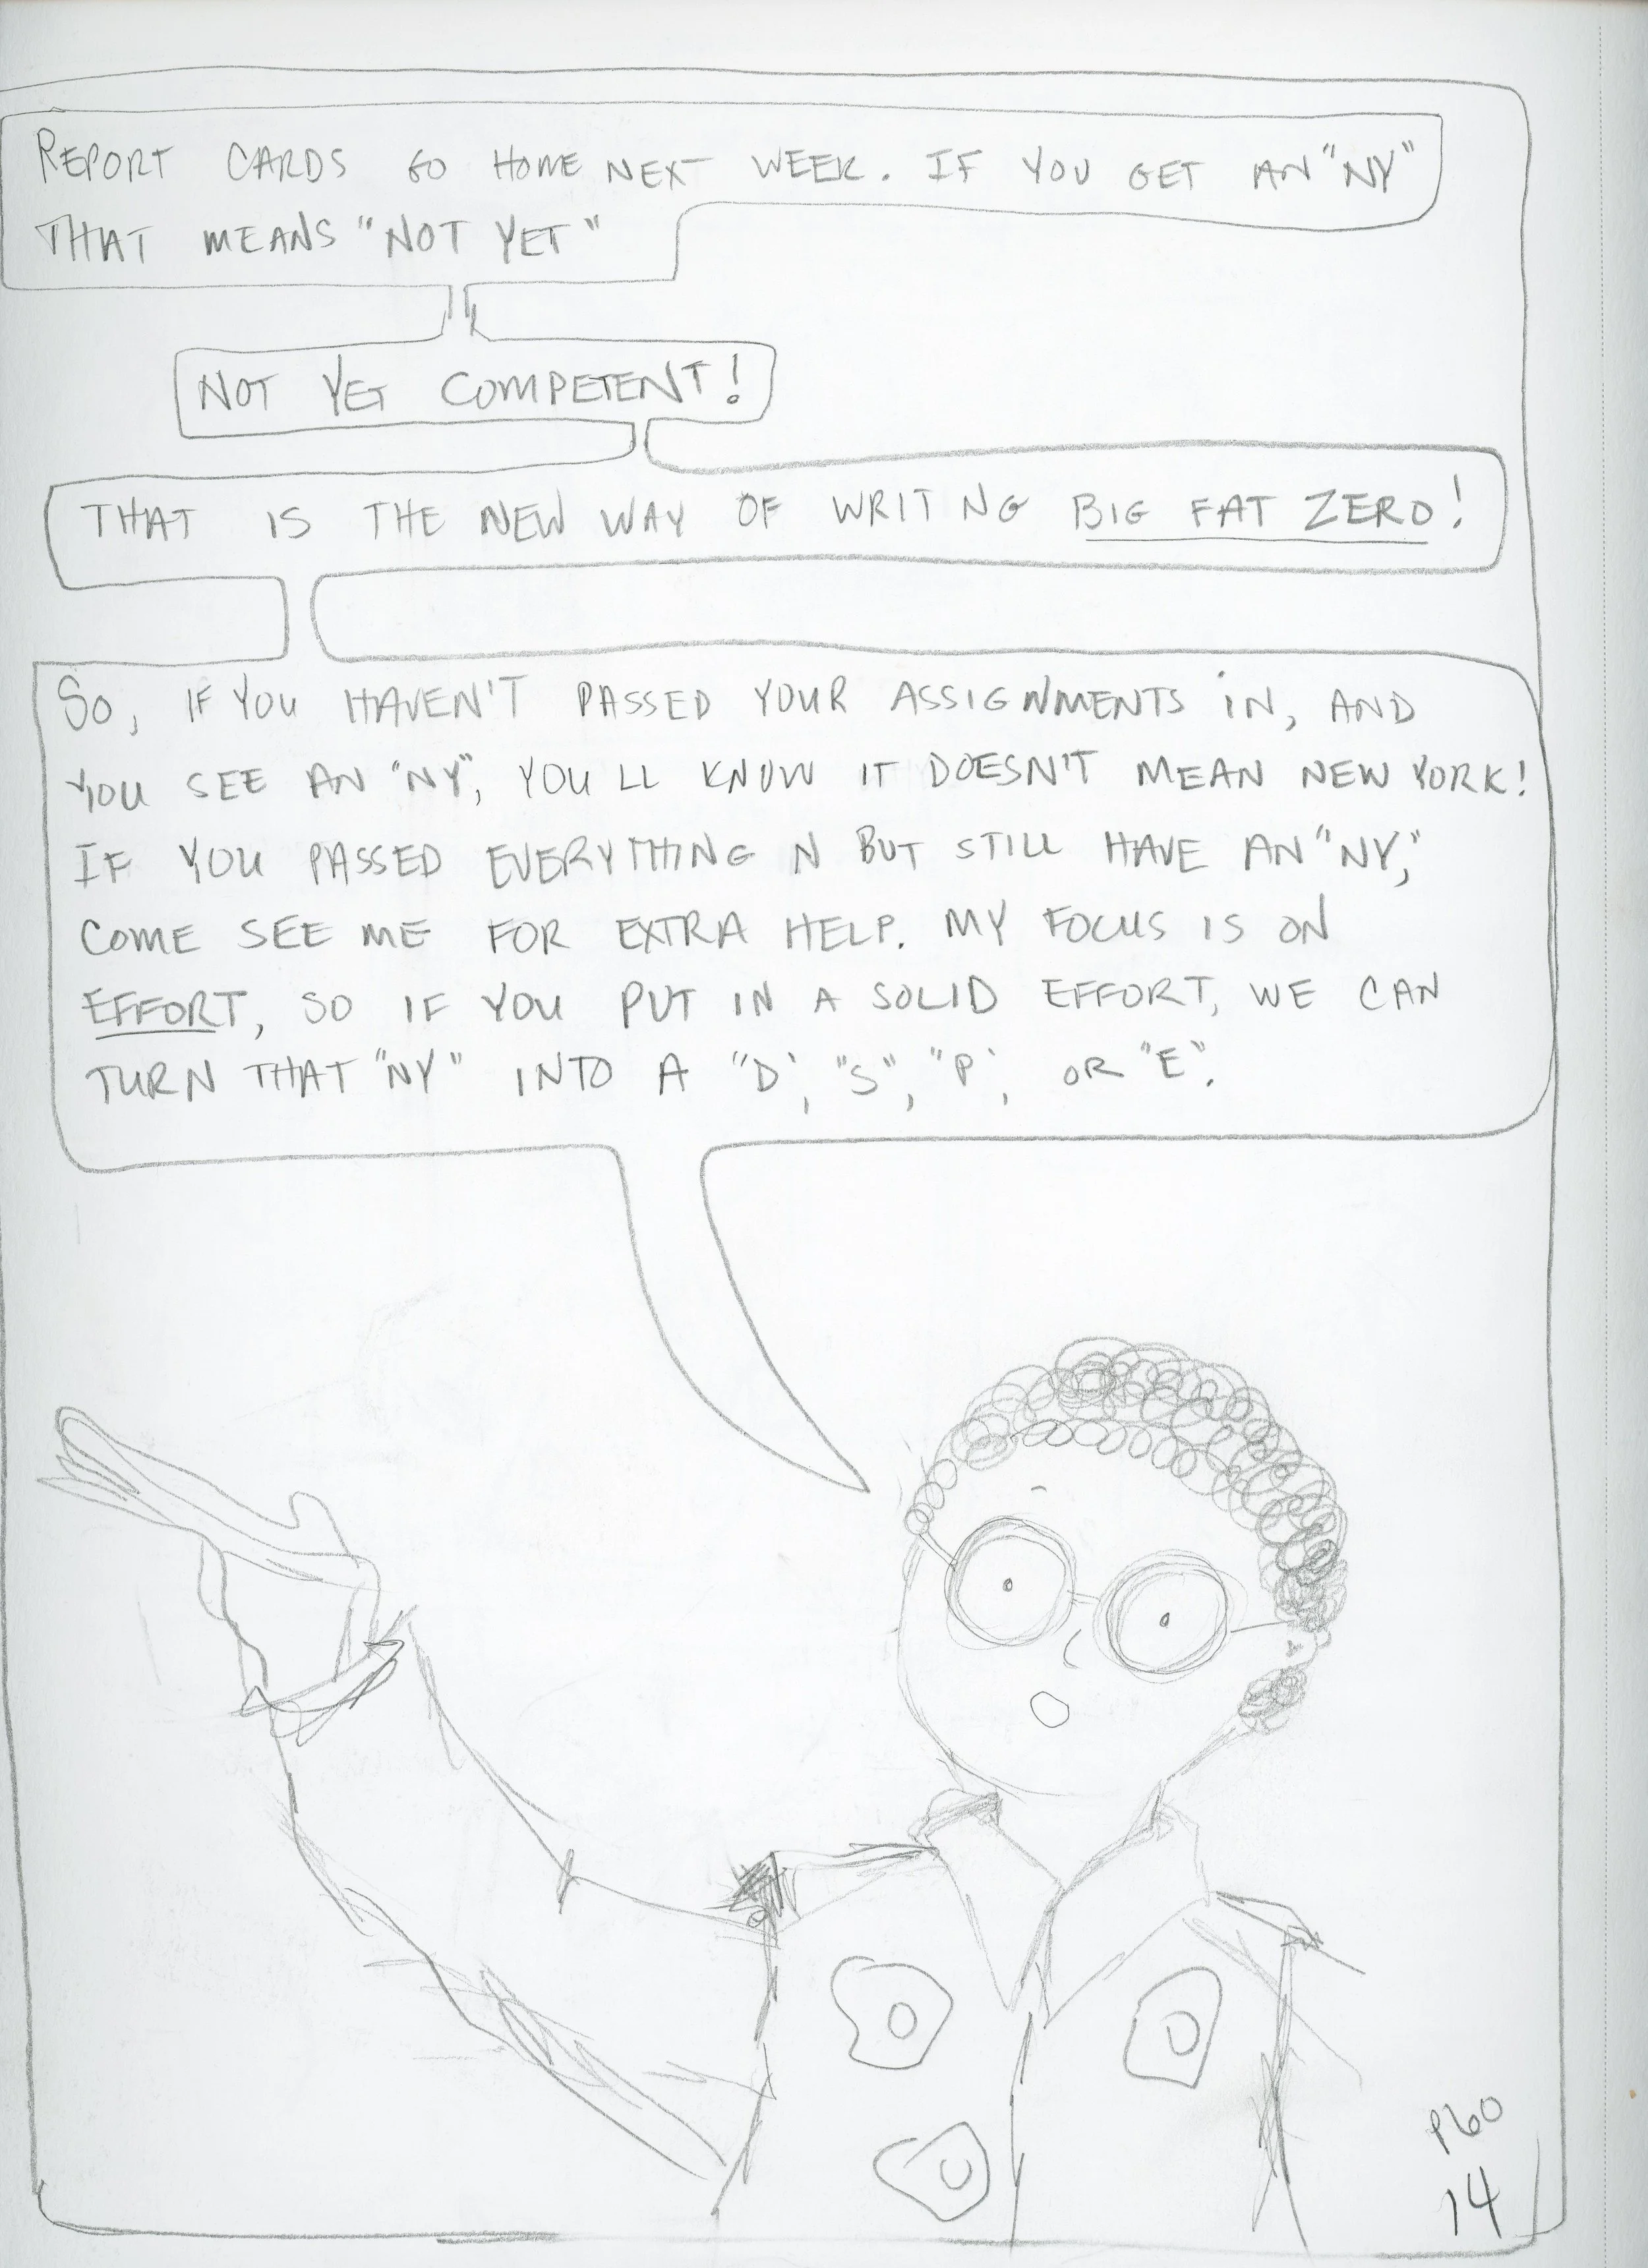 REPORT CARDS GO HOME NEXT WEEK. IF YOU GET AN "NY"
THAT MEANS "NOT YET"
NOT YET COMPETENT!
THAT IS THE NEW WAY OF WRITING BIG FAT ZERO!
SO, IF YOU HAVEN'T PASSED YOUR ASSIGNMENTS IN, AND
YOU SEE AN "NY", YOU'LL KNOW IT DOESN'T MEAN NEW YORK!
IF YOU PASSED EVERYTHING N BUT STILL HAVE AN "NY,"
COME SEE ME FOR EXTRA HELP. MY FOCUS IS ON
EFFORT, SO IF YOU PUT IN A SOLID EFFORT, WE CAN
TURN THAT "NY" INTO A "D", "S", "P", OR "E".
P60
14